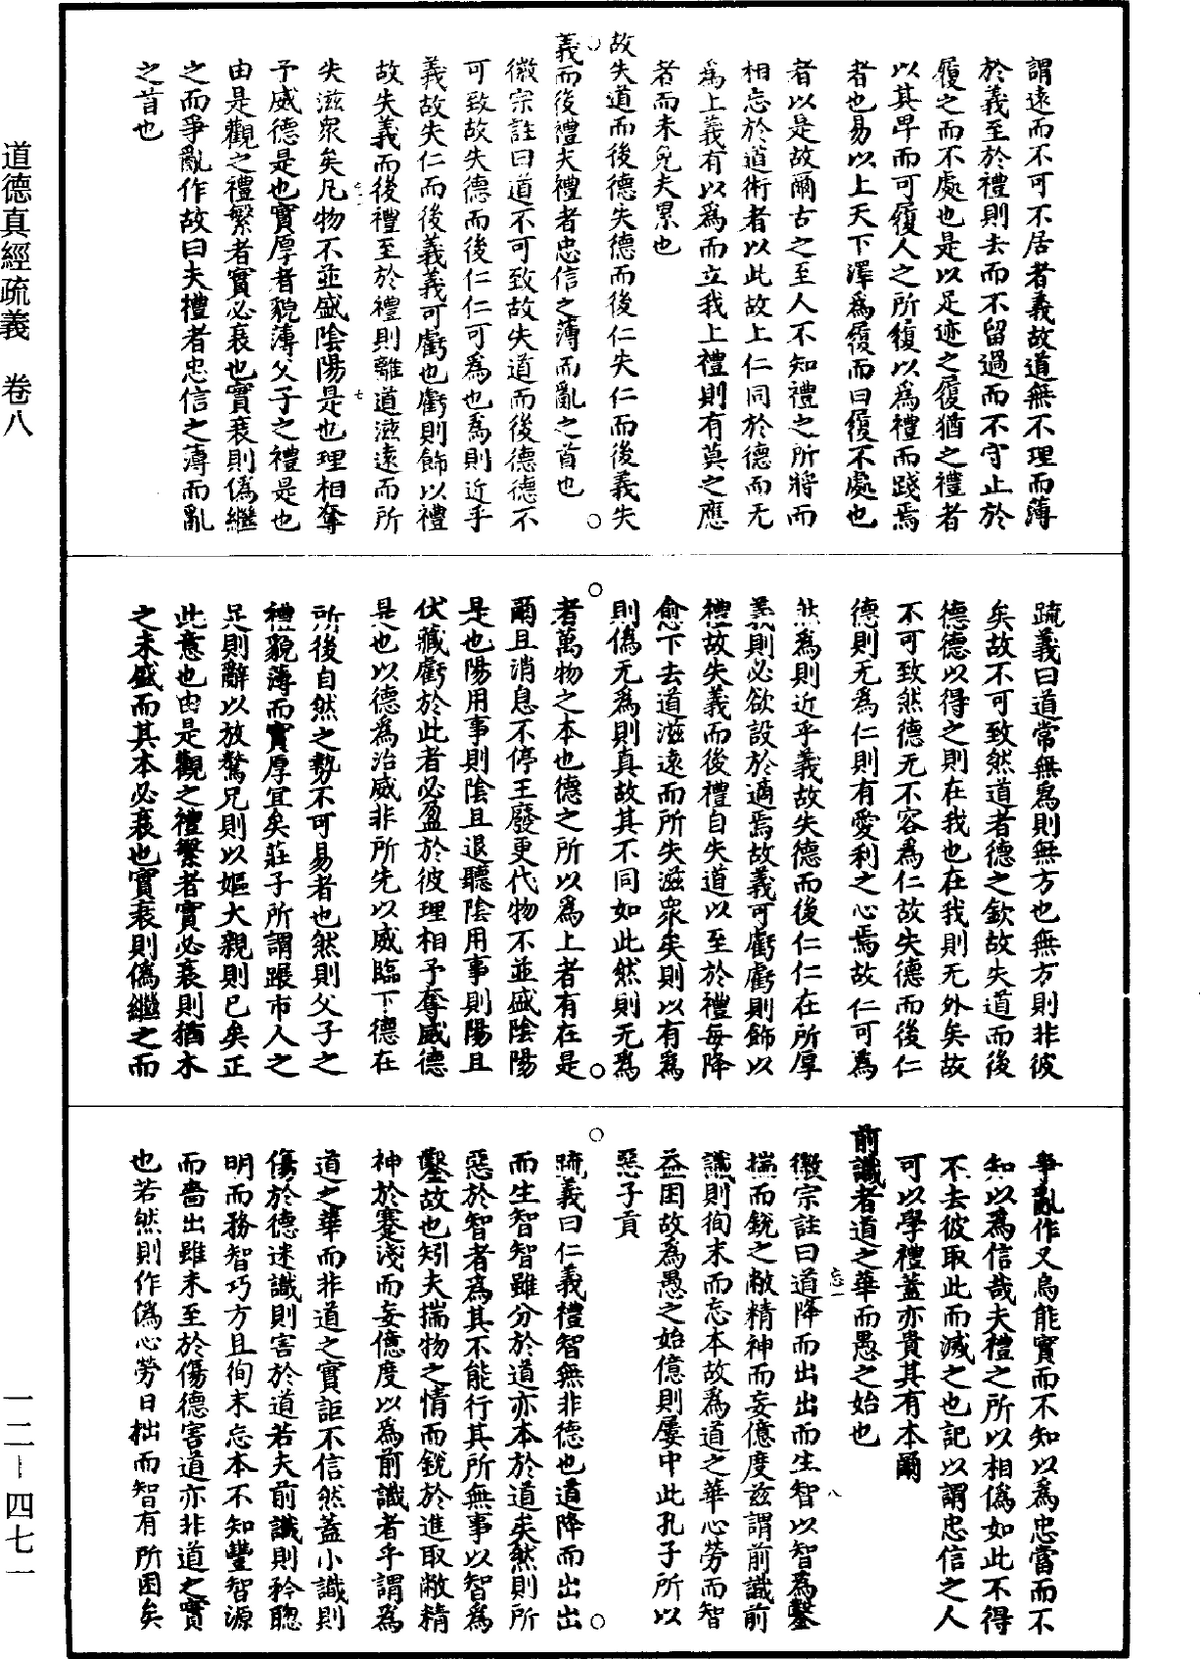 謂遠而不可不居者義故道無不理而薄
於義至於禮則去而不留過而不守止於
履之而不處也是以足迹之履猶之禮者
以其卑而可履人之所復以為禮而踐焉
者也易以上天下澤為履而曰履不處也
者以是故爾古之至人不知禮之所將而
相忘於道術者以此故上仁同於德而无
為上義有以為而立我上禮則有莫之應
者而未免夫累也
故失道而後德失德而後仁失仁而後義失
義而後禮夫禮者忠信之薄而亂之首也
徽宗註曰道不可致故失道而後德德不
可致故失德而後仁仁可為也為則近乎
義故失仁而後義義可虧也虧則飾以禮
故失義而後禮至於禮則離道滋遠而所
失滋眾矣凡物不並盛陰陽是也理相奪
予威德是也實厚者貌薄父子之禮是也
由是觀之禮繁者實必衰也實衰則偽繼
之而爭亂作故曰夫禮者忠信之薄而亂
之首也
疏義曰道常無為則無方也無方則非彼
矣故不可致然道者德之欽故失道而後
德德以得之則在我也在我則无外矣故
不可致然德无不容為仁故失德而後仁
德則无為仁則有愛利之心焉故仁可為
然為則近乎義故失德而後仁仁在所厚
義則必欲設於適焉故義可虧虧則飾以
禮故失義而後禮自失道以至於禮每降
愈下去道滋遠而所失滋眾矣則以有為
則偽无為則真故其不同如此然則无為
者萬物之本也德之所以為上者有在是
爾且消息不停王廢更代物不並盛陰陽
是也陽用事則陰且退聽陰用事則陽且
伏藏虧於此者必盈於彼理相予奪威德
是也以德為治威非所先以威臨下德在
所後自然之勢不可易者也然則父子之
禮貌薄而實厚宜矣莊子所謂蹍市人之
足則辭以放驁兄則以嫗大親則已矣正
此意也由是觀之禮繁者實必衰則猶木
之末盛而其本必衰也實衰則偽繼之而
爭亂作又烏能實而不知以為忠當而不
知以為信哉夫禮之所以相偽如此不得
不去彼取此而滅之也記以謂忠信之人
可以學禮蓋亦貴其有本爾
前識者道之華而愚之始也
徽宗註曰道降而出出而生智以智為鑿
揣而銳之敝精神而妄億度茲謂前識前
識則徇末而忘本故為道之華心勞而智
益困故為愚之始億則屢中此孔子所以
惡子貢
疏義曰仁義禮智無非德也道降而出出
而生智智雖分於道亦本於道矣然則所
惡於智者為其不能行其所無事以智為
鑿故也矧夫揣物之情而銳於進取敝精
神於蹇淺而妄億度以為前識者乎謂為
道之華而非道之實詎不信然蓋小識則
傷於德迷識則害於道若夫前識則矜聰
明而務智巧方且徇末忘本不知豐智源
而嗇出雖未至於傷德害道亦非道之實
也若然則作偽心勞日拙而智有所困矣
道德真經疏義 卷八
一二－四七一